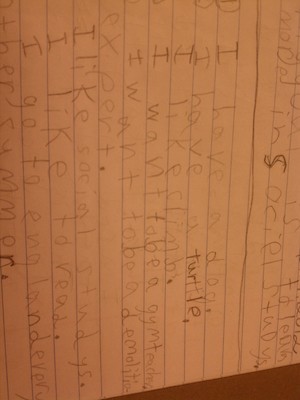 to learn
model in Social Studys.
I have a dog.
I have a turtle.
I like
I want to be a gym teacher.
I want to be a demolition
expert.
I like social studys.
I like to read.
I go to england every
other summer.